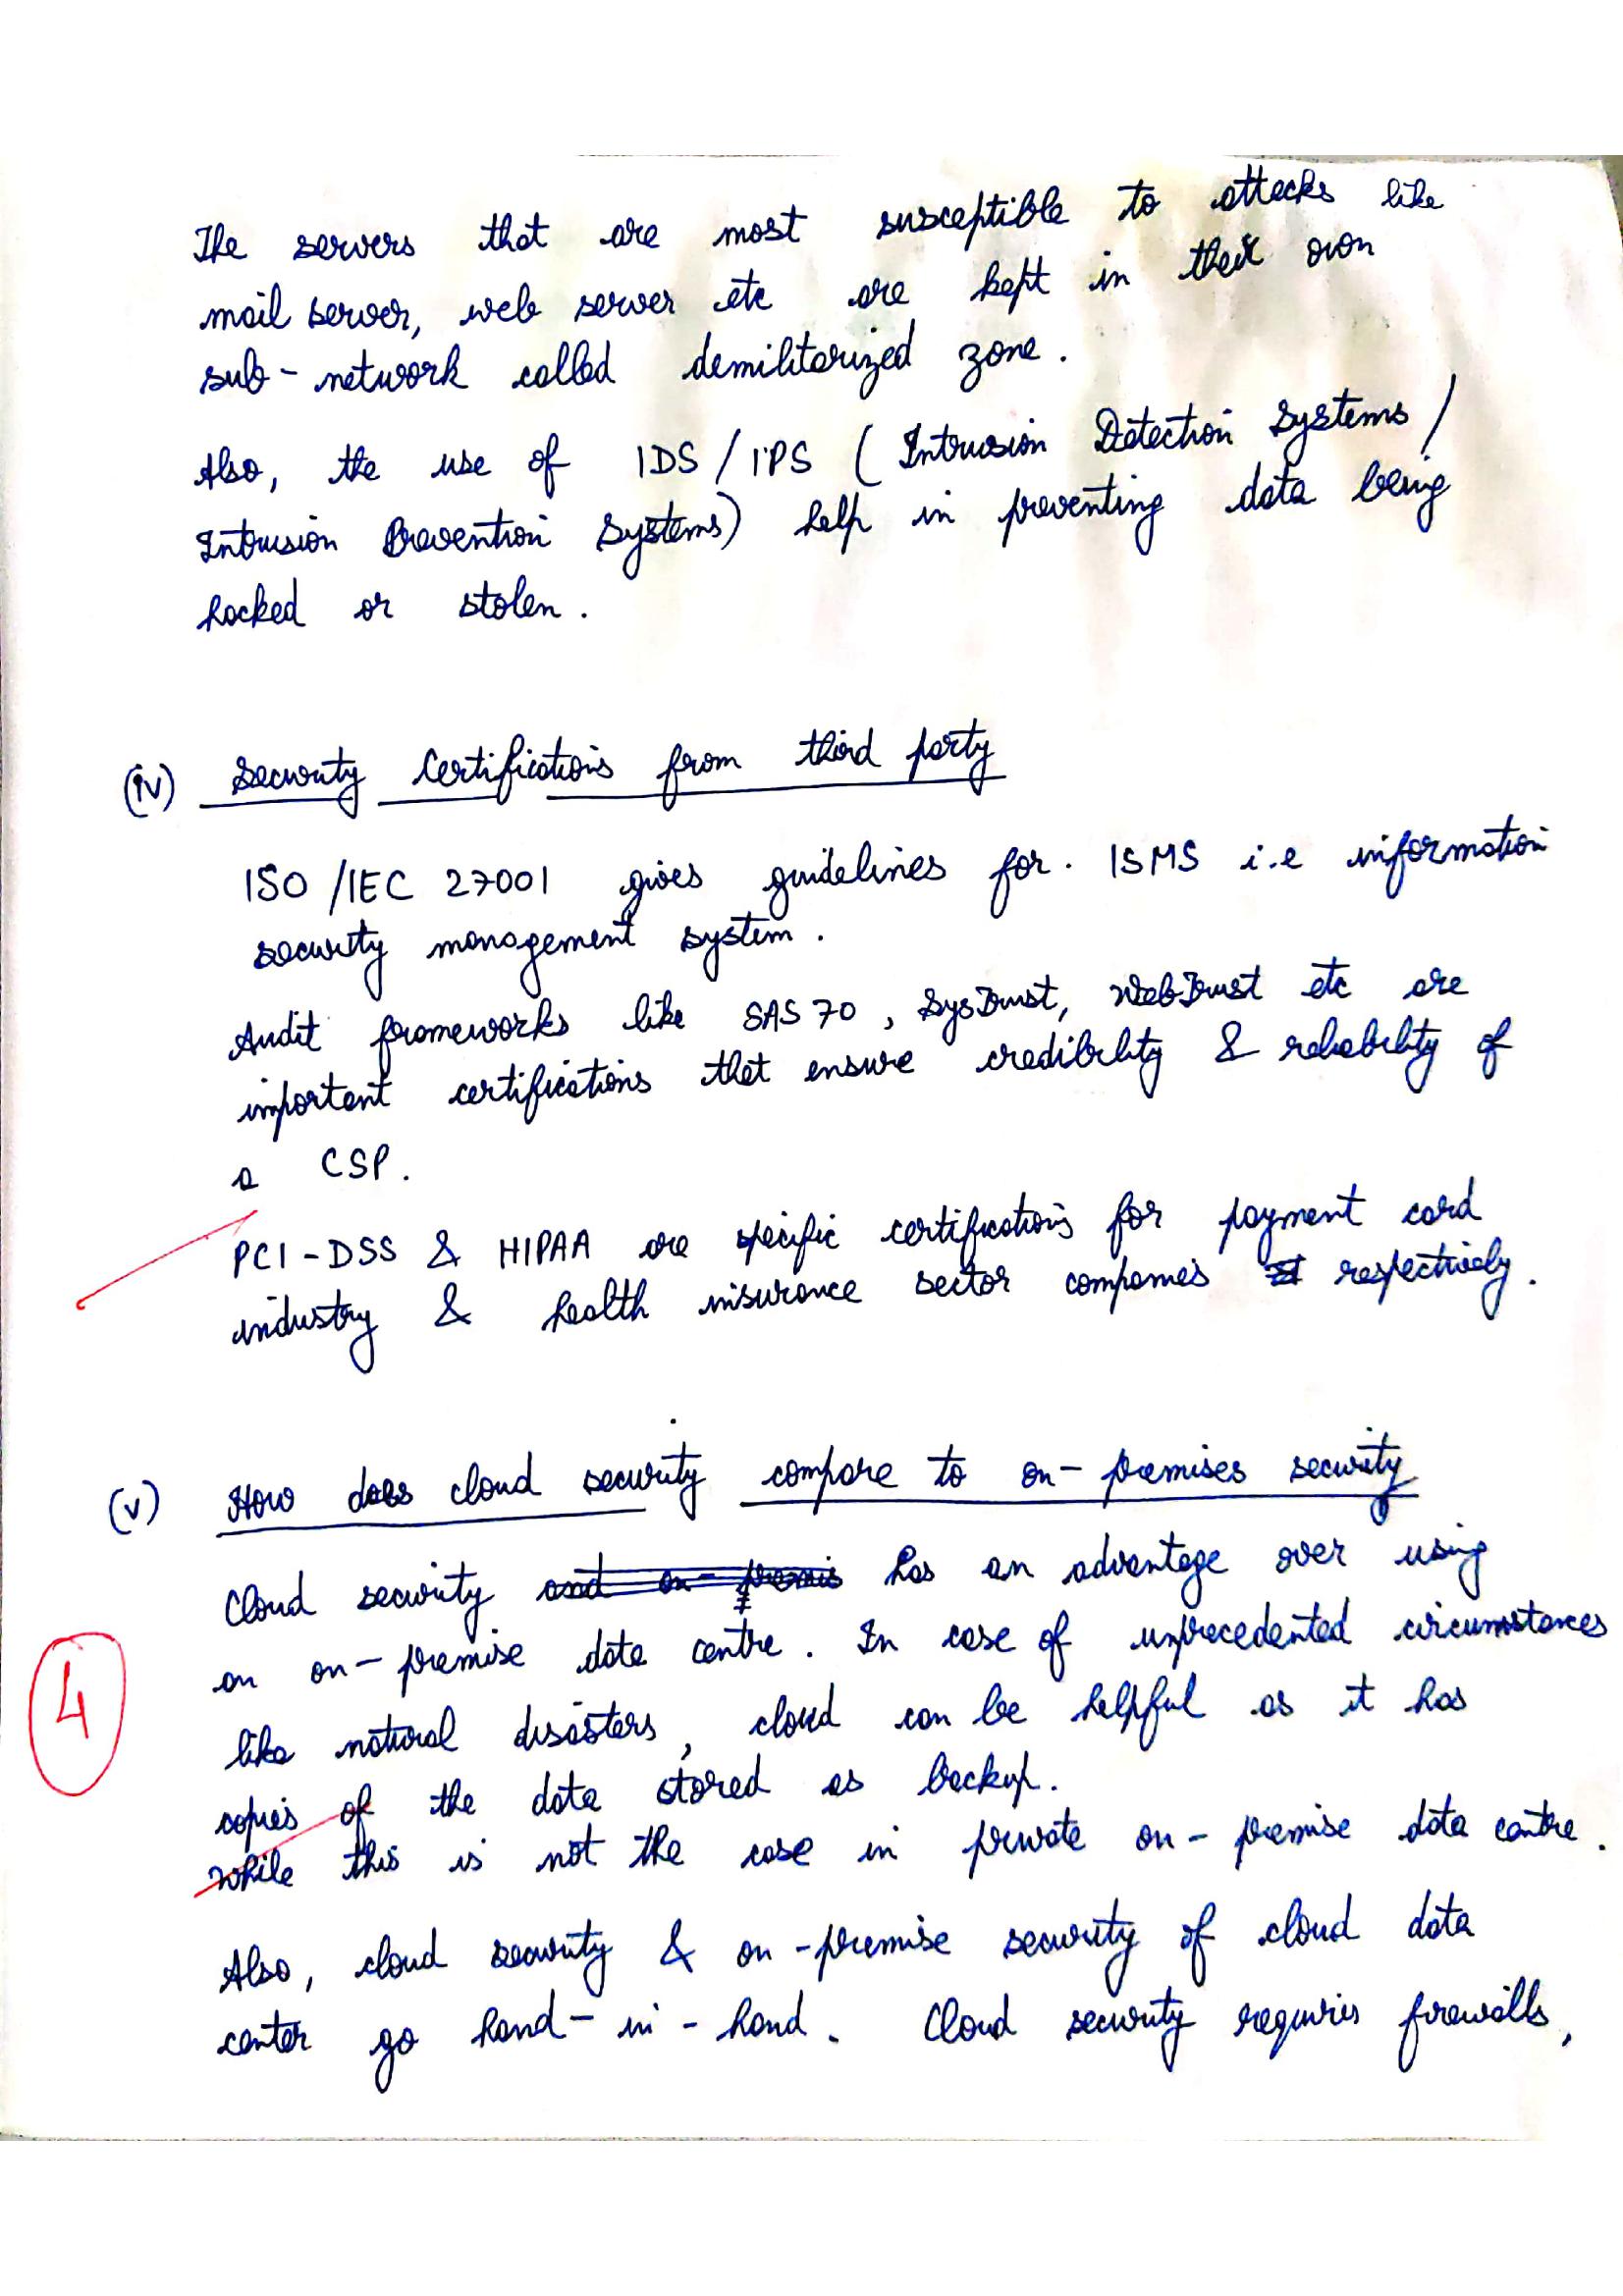 The servers that are most susceptible to attacks like
mail server, web server etc are kept in their own
sub-network called demilitarized zone.
Also, the use of IDS/IPS (Intrusion Detection Systems/
Intrusion Prevention Systems) help in preventing data being
hacked or stolen.
(iv) Security Certifications from third party
ISO/IEC 27001 gives guidelines for. ISMS i.e information
security management system.
Audit frameworks like SAS 70, SysTrust, WebTrust etc are
important certifications that ensure credibility & reliability of
a CSP.
PCI-DSS & HIPAA are specific certifications for payment card
industry & health insurance sector companies respectively.
(v) How does cloud security compare to on-premises security
Cloud security and on-premis has an advantage over using
an on-premise data centre. In case of unprecedented circumstances
4
like natural disasters, cloud can be helpful as it has
copies of the data stored as backup.
while this is not the case in private on-premise data centre.
Also, cloud security & on-premise security of cloud data
center go hand-in-hand. Cloud security requires firewalls,